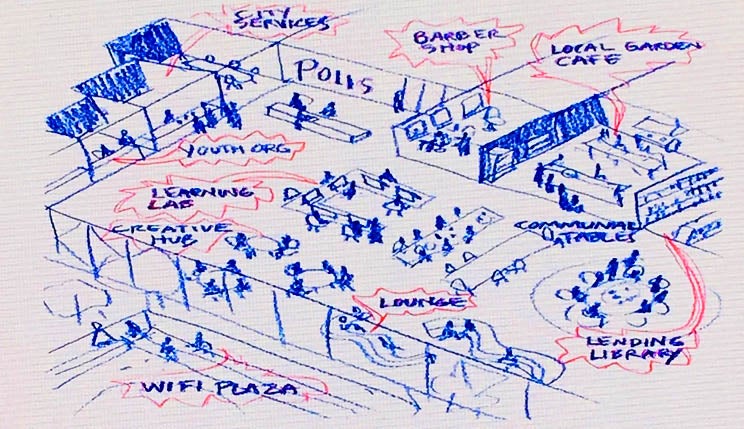 CITY
SERVICES
POLIS
BARBER
SHOP
LOCAL GARDEN
CAFE
YOUTH ORG
LEARNING
LAB
CREATIVE
HUB
COMMUNAL
TABLES
LOUNGE
LENDING
LIBRARY
WIFI PLAZA